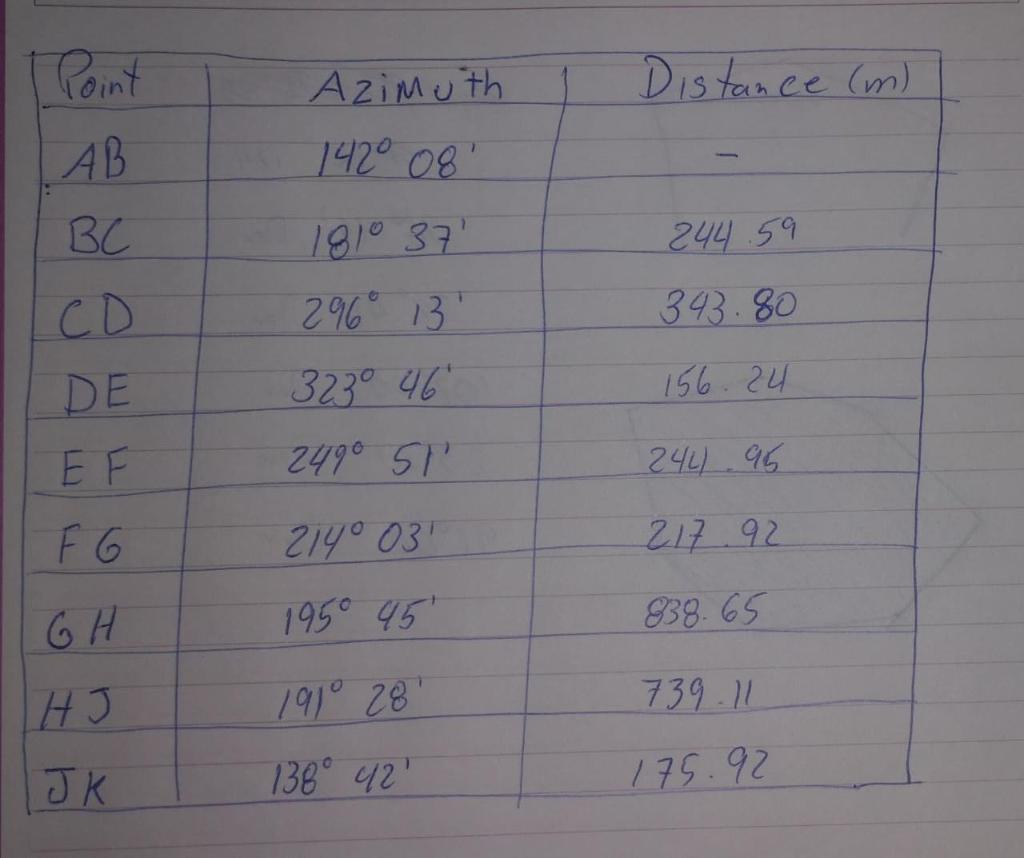 Point Azimuth Distance (m)
AB 142° 08' -
BC 181° 37' 244.59
CD 296° 13' 343.80
DE 323° 46' 156.24
EF 249° 51' 244.96
FG 214° 03' 217.92
GH 195° 45' 838.65
HJ 191° 28' 739.11
JK 138° 42' 175.92